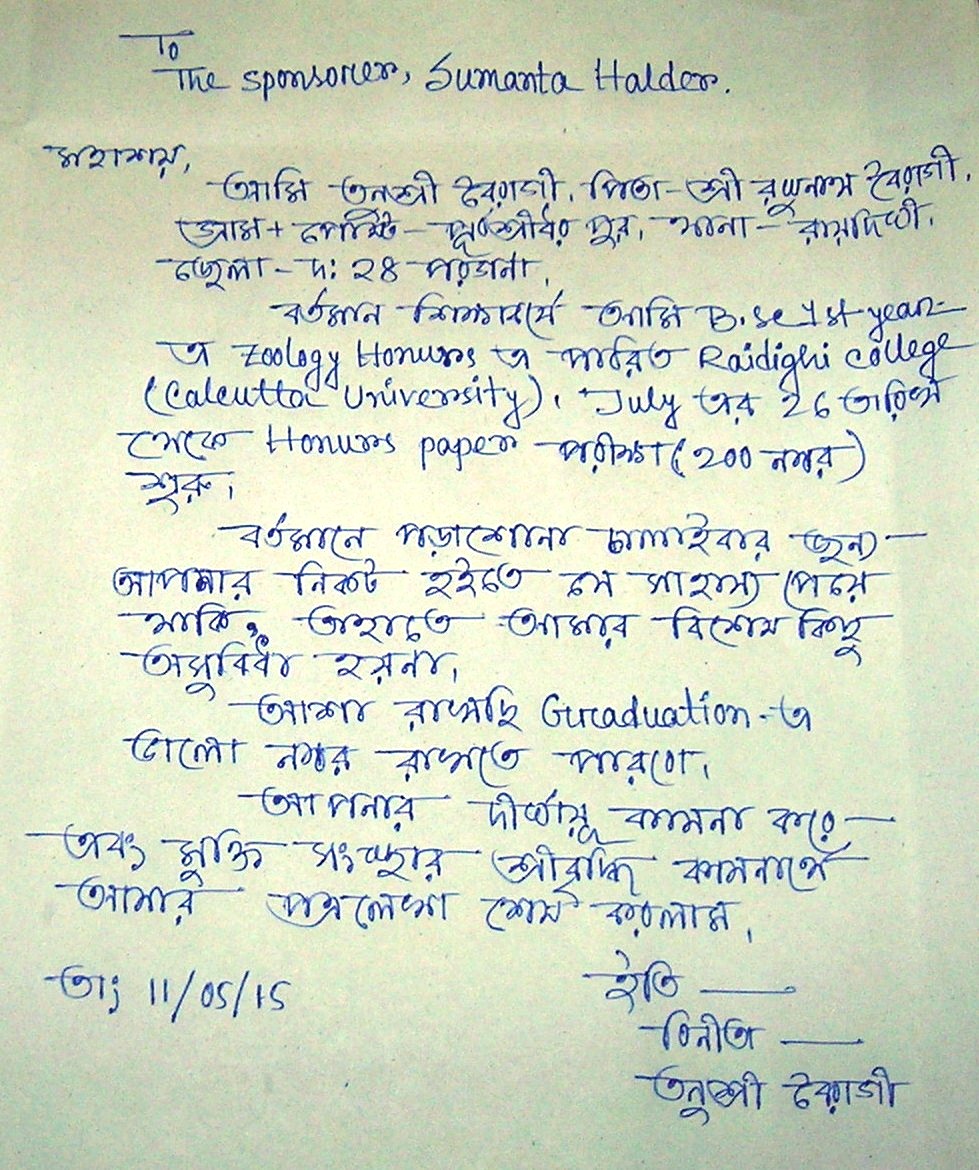 To
The sponsorer, Sumanta Halder.
মহাশয়,
আমি তনুশ্রী বৈরাগী, পিতা - শ্রী রঘুনাথ বৈরাগী,
গ্রাম + পোস্ট - পূর্বশ্রীধর পুর, থানা - রায়দিঘী,
জেলা - দ: ২৪ পরগনা,
বর্তমান শিক্ষাবর্ষে আমি B.sc 1st year-
এ Zoology Honurs এ পাঠরত Raidighi college
(Calcutta University), July এর 26 তারিখ
থেকে Honurs paper পরীক্ষা (200 নম্বর)
শুরু,
বর্তমানে পড়াশোনা চালাইবার জন্য -
আপনার নিকট হইতে যে সাহায্য পেয়ে
থাকি, তাহাতে আমার বিশেষ কিছু
অসুবিধা হয়না,
আশা রাখছি Graduation - এ
ভালো নম্বর রাখতে পারবো,
আপনার দীর্ঘায়ু কামনা করে -
এবং মুক্তি সংস্থার শ্রীবৃদ্ধি কামনার্থে
আমার পত্রলেখা শেষ করলাম,
তাং 11/05/15
ইতি —
বিনীতা —
তনুশ্রী বৈরাগী